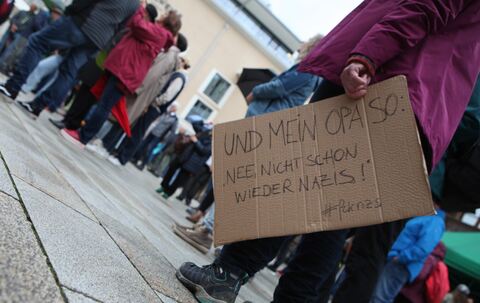 UND MEIN OPA SO:
„NEE, NICHT SCHON
WIEDER NAZIS!"
#fcknzs